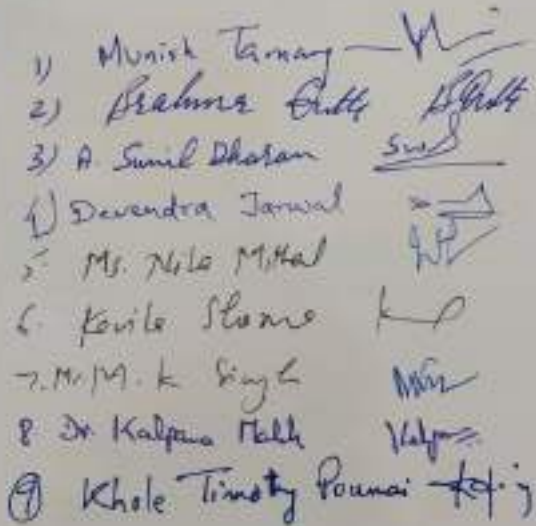 1) Munish Tamang
2) Brahma Dutt
3) A. Sunil Dharan
4) Devendra Jarwal
5. Ms. Nila Mittal
6. Kavita Sharma
7. Mr. M. K Singh
8 Dr. Kalpana Malik
9 Khole Timothy Poumai